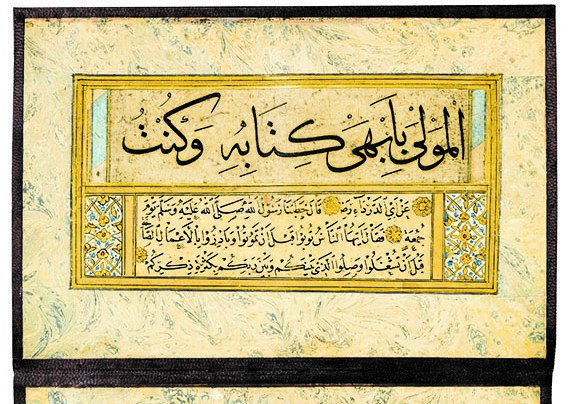 المولى بابهى كتابه وكنت
عن ابي الدرداء رض قال خطبنا رسول الله صلى الله عليه وسلم يوم
جمعة فقال يا ايها الناس توبوا قبل ان تموتوا وبادروا بالاعمال
قبل ان تشغلوا وصلوا الذي بينكم وبين ربكم بكثرة ذكركم